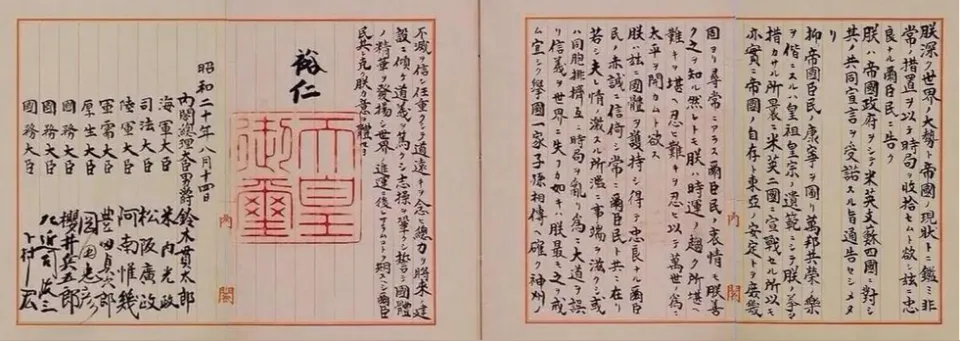 朕深ク世界ノ大勢ト帝國ノ現狀トニ鑑ミ非
常ノ措置ヲ以テ時局ヲ收拾セムト欲シ玆ニ忠
良ナル爾臣民ニ告ク
朕ハ帝國政府ヲシテ米英支蘇四國ニ對シ
其ノ共同宣言ヲ受諾スル旨通告セシメタ
リ
抑帝國臣民ノ康寧ヲ圖リ萬邦共榮ノ樂
ヲ偕ニスルハ皇祖皇宗ノ遺範ニシテ朕ノ拳々
措カサル所曩ニ米英二國ニ宣戰セル所以モ
亦實ニ帝國ノ自存ト東亞ノ安定トヲ庶幾
內閣
固ヨリ尋常ニアラス爾臣民ノ衷情モ朕善
ク之ヲ知ル然レトモ朕ハ時運ノ趨ク所堪ヘ
難キヲ堪ヘ忍ヒ難キヲ忍ヒ以テ萬世ノ爲ニ
太平ヲ開カムト欲ス
朕ハ玆ニ國體ヲ護持シ得テ忠良ナル爾臣
民ノ赤誠ニ信倚シ常ニ爾臣民ト共ニ在リ
若シ夫レ情ノ激スル所濫ニ事端ヲ滋クシ或
ハ同胞排擠互ニ時局ヲ亂リ爲ニ大道ヲ誤
リ信義ヲ世界ニ失フカ如キハ朕最モ之ヲ戒
ム宜シク擧國一家子孫相傳ヘ確ク神州ノ
不滅ヲ信シ任重クシテ道遠キヲ念ヒ總力ヲ將來ノ建
設ニ傾ケ道義ヲ篤クシ志操ヲ鞏クシ誓テ國體
ノ精華ヲ發揚シ世界ノ進運ニ後レサラムコトヲ期スヘシ爾臣
民其レ克ク朕カ意ヲ體セヨ
裕仁
天皇御璽
內閣
昭和二十年八月十四日
內閣總理大臣男爵 鈴木貫太郎
海軍大臣 米內光政
司法大臣 松阪廣政
陸軍大臣 阿南惟幾
軍需大臣 豐田貞次郎
厚生大臣 岡田忠彥
國務大臣 櫻井兵五郎
國務大臣 左近司政三
國務大臣 下村宏